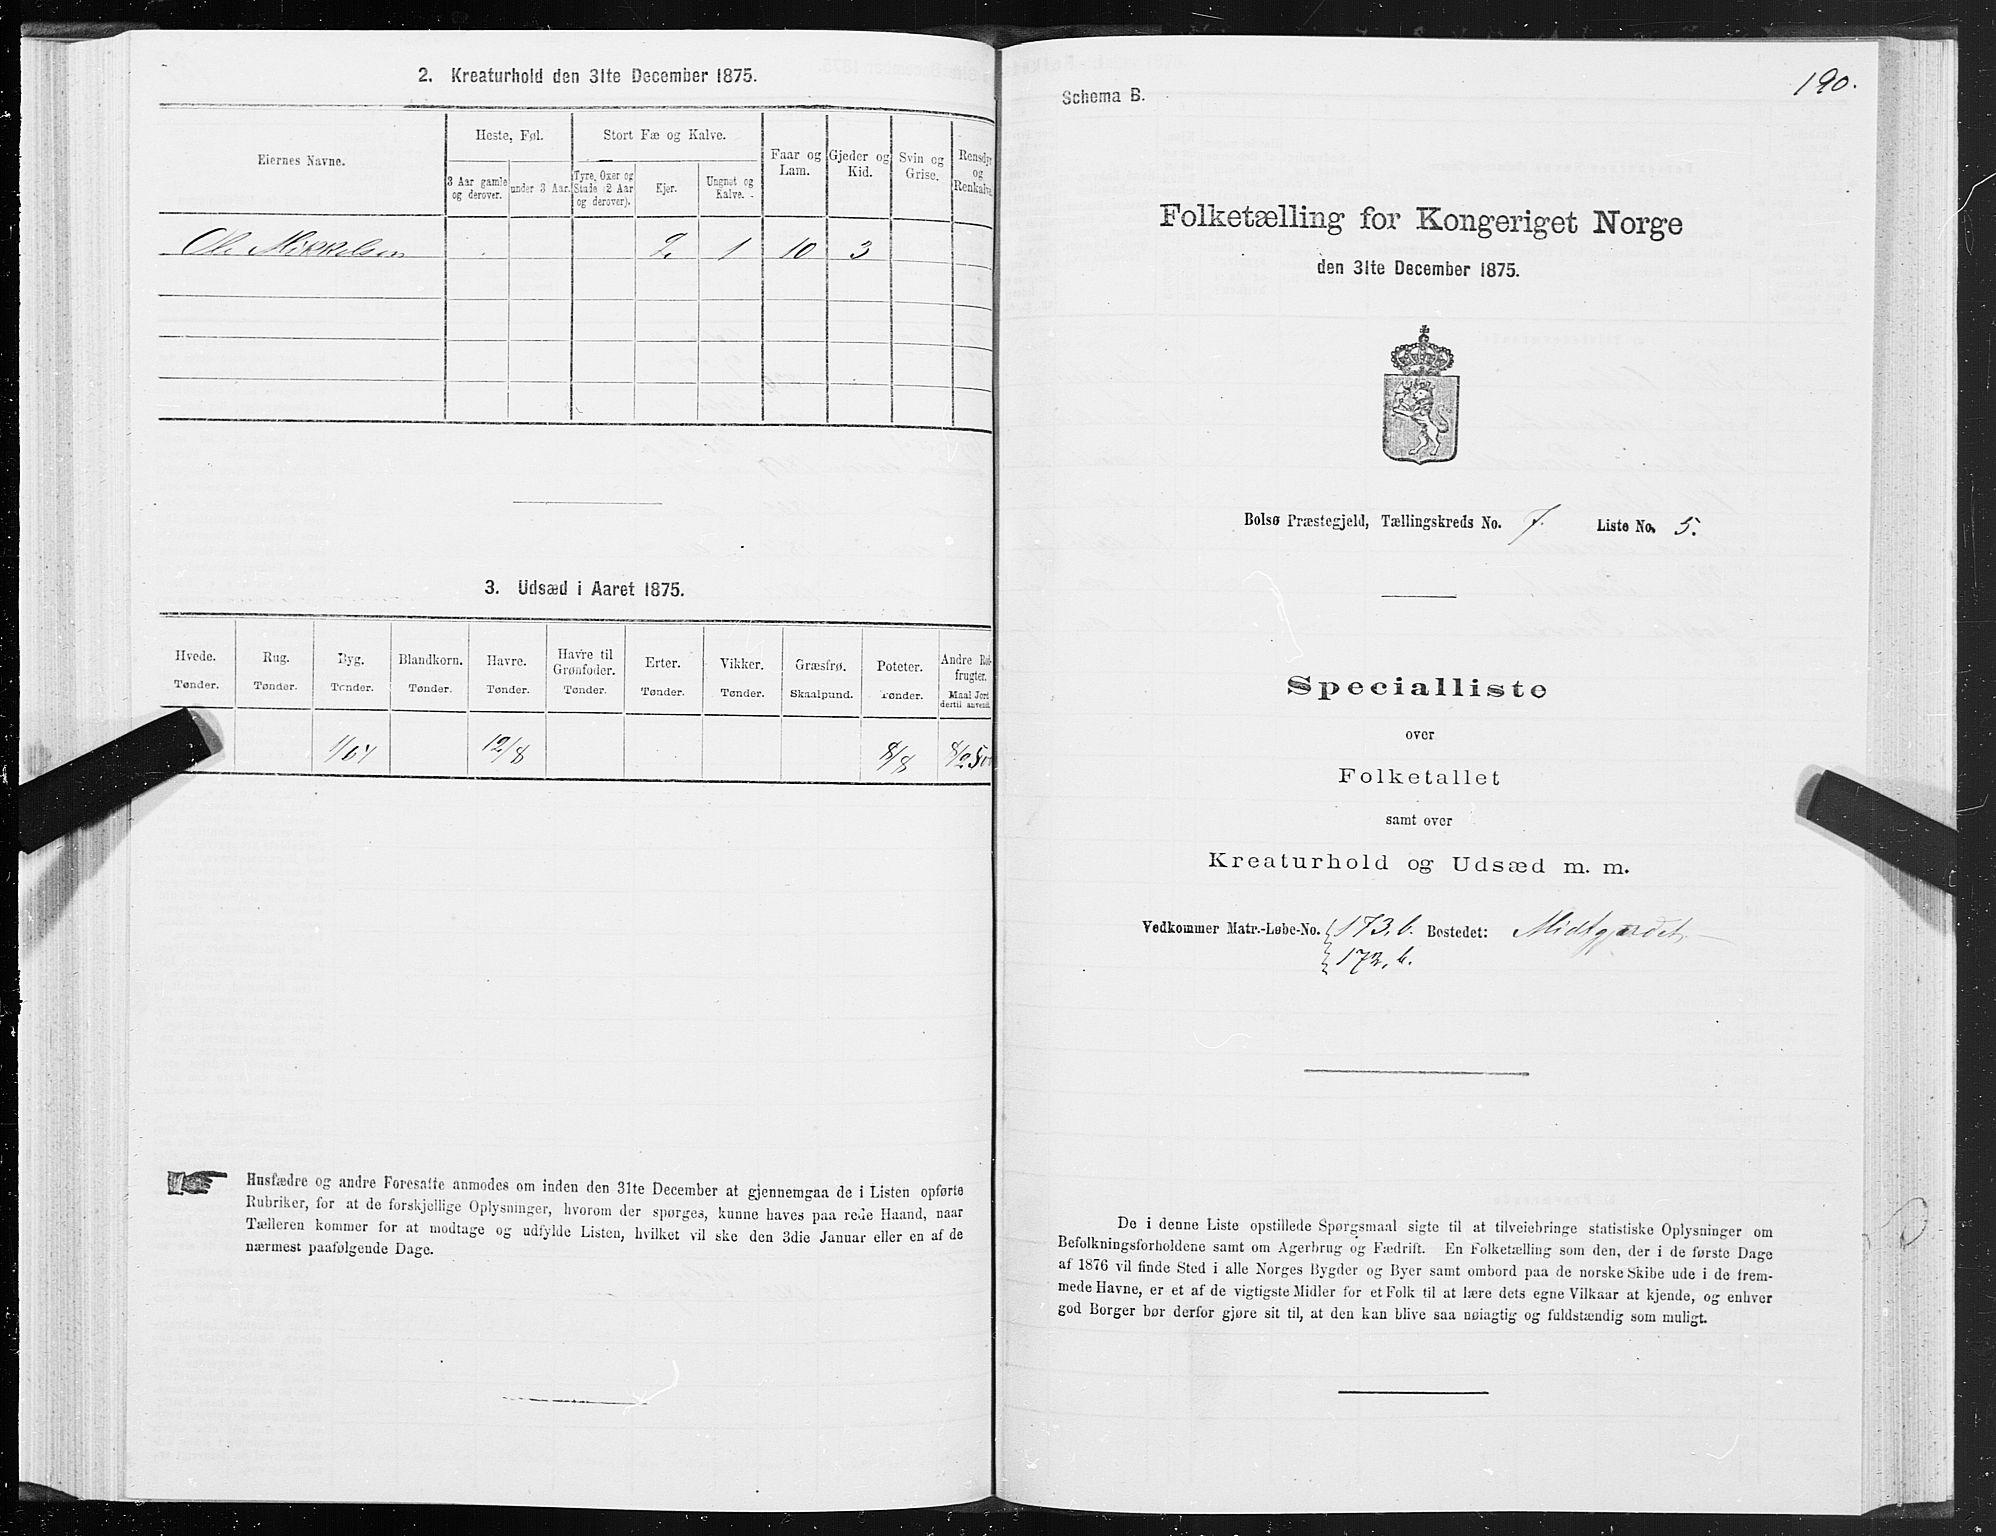 2. Kreaturhold den 31te December 1875.
Eiernes Navne.
Heste, Føl.
Stort Fæ og Kalve.
Faar og Lam.
Gjeder og Kid.
Svin og Grise.
Rensdyr og Renkalve
3 Aar gamle og derover.
under 3 Aar.
Tyre, Oxer og Stude (2 Aar og derover).
Kjer.
Ungnøt og Kalve.
Ole Mikkelsen 2 1 10 3
3. Udsæd i Aaret 1875.
Hvede. Rug. Byg. Blandkorn. Havre. Havre til Grønfoder. Erter. Vikker. Græsfrø. Poteter. Andre Rodfrugter.
Tønder. Tønder. Tønder. Tønder. Tønder. Tønder. Tønder. Tønder. Skaalpund. Tønder. Maal Jord dertil anvendt.
1/64 12/8 8/8
Husfædre og andre Foresatte anmodes om inden den 31te December at gjennemgaa de i Listen opførte
Rubriker, for at de forskjellige Oplysninger, hvorom der spørges, kunne haves paa rede Haand, naar
Tælleren kommer for at modtage og udfylde Listen, hvilket vil ske den 3die Januar eller en af de
nærmest paafølgende Dage.
190.
Schema B.
Folketælling for Kongeriget Norge
den 31te December 1875.
Bolsø Præstegjeld, Tællingskreds No. 7. Liste No. 5.
Specialliste
over
Folketallet
samt over
Kreaturhold og Udsæd m. m.
Vedkommer Matr.-Løbe-No. 173, b. Bostedet: Midtgerdet
172, b.
De i denne Liste opstillede Spørgsmaal sigte til at tilveiebringe statistiske Oplysninger om
Befolkningsforholdene samt om Agerbrug og Fædrift. En Folketælling som den, der i de første Dage
af 1876 vil finde Sted i alle Norges Bygder og Byer samt ombord paa de norske Skibe ude i de frem-
mede Havne, er et af de vigtigste Midler for et Folk til at lære dets egne Vilkaar at kjende, og enhver
god Borger bør derfor gjøre sit til, at den kan blive saa nøiagtig og fuldstændig som muligt.